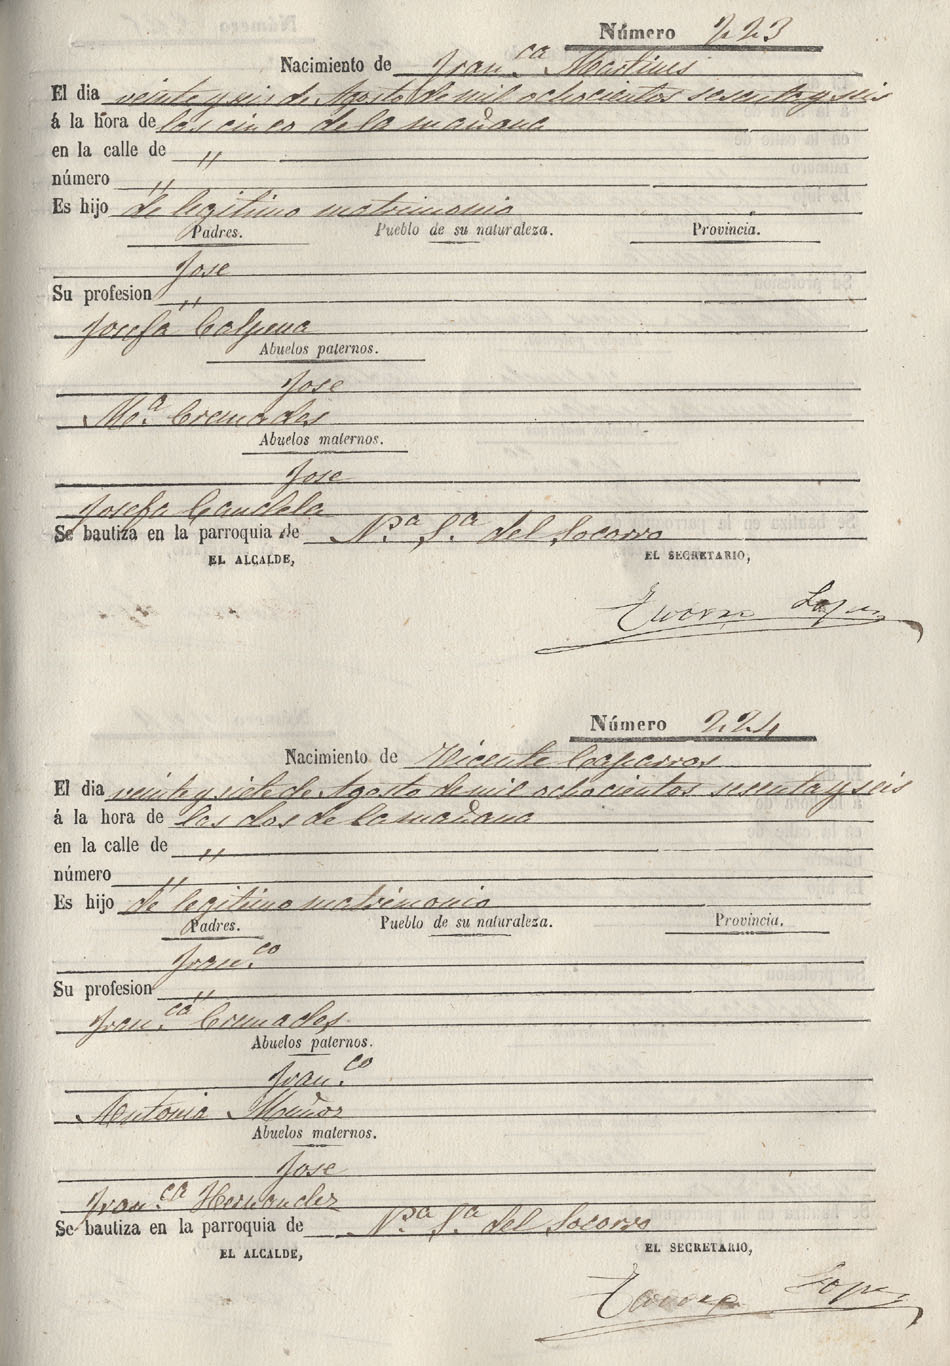 Número 223
Nacimiento de Fran.ca Martines
El dia veinte y seis de Agosto de mil ochocientos sesenta y seis
á la hora de las cinco de la mañana
en la calle de "
número "
Es hijo de legitimo matrimonio
Padres. Pueblo de su naturaleza. Provincia.
Jose
Su profesion "
Josefa Calpena
Abuelos paternos.
Jose
M.a Cremades
Abuelos maternos.
Jose
Josefa Candela
Se bautiza en la parroquia de N.a S.a del Socorro
EL ALCALDE, EL SECRETARIO,
Lopez
Número 224
Nacimiento de Vicente Caparros
El dia veinte y siete de Agosto de mil ochocientos sesenta y seis
á la hora de las dos de la mañana
en la calle de "
número "
Es hijo de legitimo matrimonio
Padres. Pueblo de su naturaleza. Provincia.
Fran.co
Su profesion "
Fran.ca Cremades
Abuelos paternos.
Fran.co
Antonia Muñoz
Abuelos maternos.
Jose
Fran.ca Hernandez
Se bautiza en la parroquia de N.a S.a del Socorro
EL ALCALDE, EL SECRETARIO,
Lopez